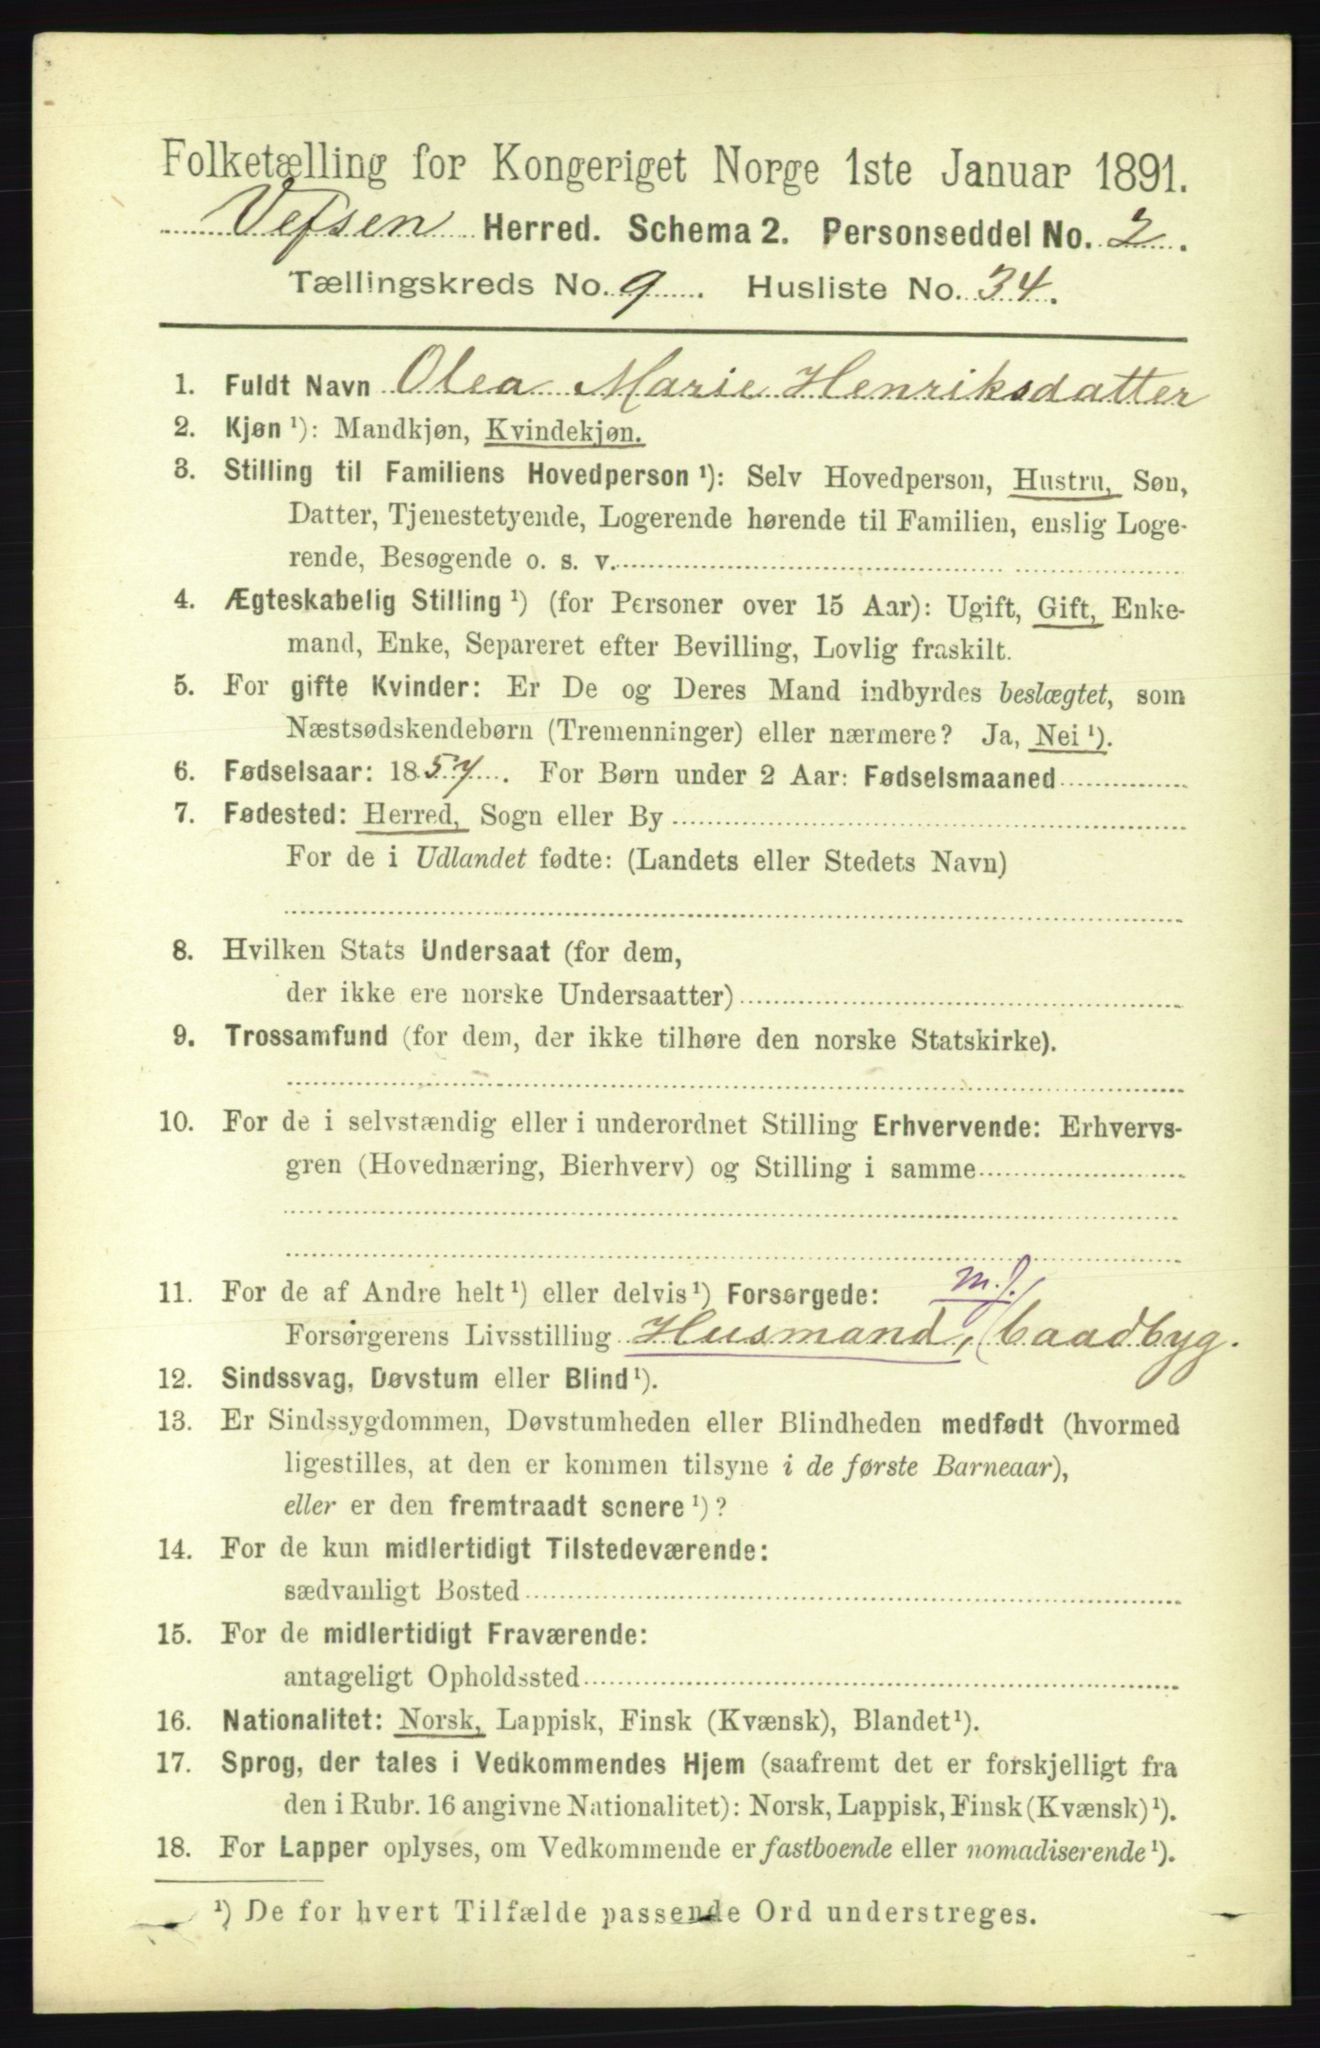 Folketælling for Kongeriget Norge 1ste Januar 1891.
Vefsen Herred. Schema 2. Personseddel No. 2.
Tællingskreds No. 9. Husliste No. 34.
1. Fuldt Navn Olea Marie Henriksdatter
2. Kjøn ¹): Mandkjøn, Kvindekjøn.
3. Stilling til Familiens Hovedperson ¹): Selv Hovedperson, Hustru, Søn,
Datter, Tjenestetyende, Logerende hørende til Familien, enslig Loge-
rende, Besøgende o. s. v.
4. Ægteskabelig Stilling ¹) (for Personer over 15 Aar): Ugift, Gift, Enke-
mand, Enke, Separeret efter Bevilling, Lovlig fraskilt.
5. For gifte Kvinder: Er De og Deres Mand indbyrdes beslægtet, som
Næstsødskendebørn (Tremenninger) eller nærmere? Ja, Nei ¹).
6. Fødselsaar: 1857. For Børn under 2 Aar: Fødselsmaaned
7. Fødested: Herred, Sogn eller By
For de i Udlandet fødte: (Landets eller Stedets Navn)
8. Hvilken Stats Undersaat (for dem,
der ikke ere norske Undersaatter)
9. Trossamfund (for dem, der ikke tilhøre den norske Statskirke).
10. For de i selvstændig eller i underordnet Stilling Erhvervende: Erhvervs-
gren (Hovednæring, Bierhverv) og Stilling i samme
11. For de af Andre helt ¹) eller delvis ¹) Forsørgede: m. j.
Forsørgerens Livsstilling Husmand, baadbyg.
12. Sindssvag, Døvstum eller Blind ¹).
13. Er Sindssygdommen, Døvstumheden eller Blindheden medfødt (hvormed
ligestilles, at den er kommen tilsyne i de første Barneaar),
eller er den fremtraadt senere ¹)?
14. For de kun midlertidigt Tilstedeværende:
sædvanligt Bosted
15. For de midlertidigt Fraværende:
antageligt Opholdssted
16. Nationalitet: Norsk, Lappisk, Finsk (Kvænsk), Blandet ¹).
17. Sprog, der tales i Vedkommendes Hjem (saafremt det er forskjelligt fra
den i Rubr. 16 angivne Nationalitet): Norsk, Lappisk, Finsk (Kvænsk) ¹).
18. For Lapper oplyses, om Vedkommende er fastboende eller nomadiserende ¹).
¹) De for hvert Tilfælde passende Ord understreges.